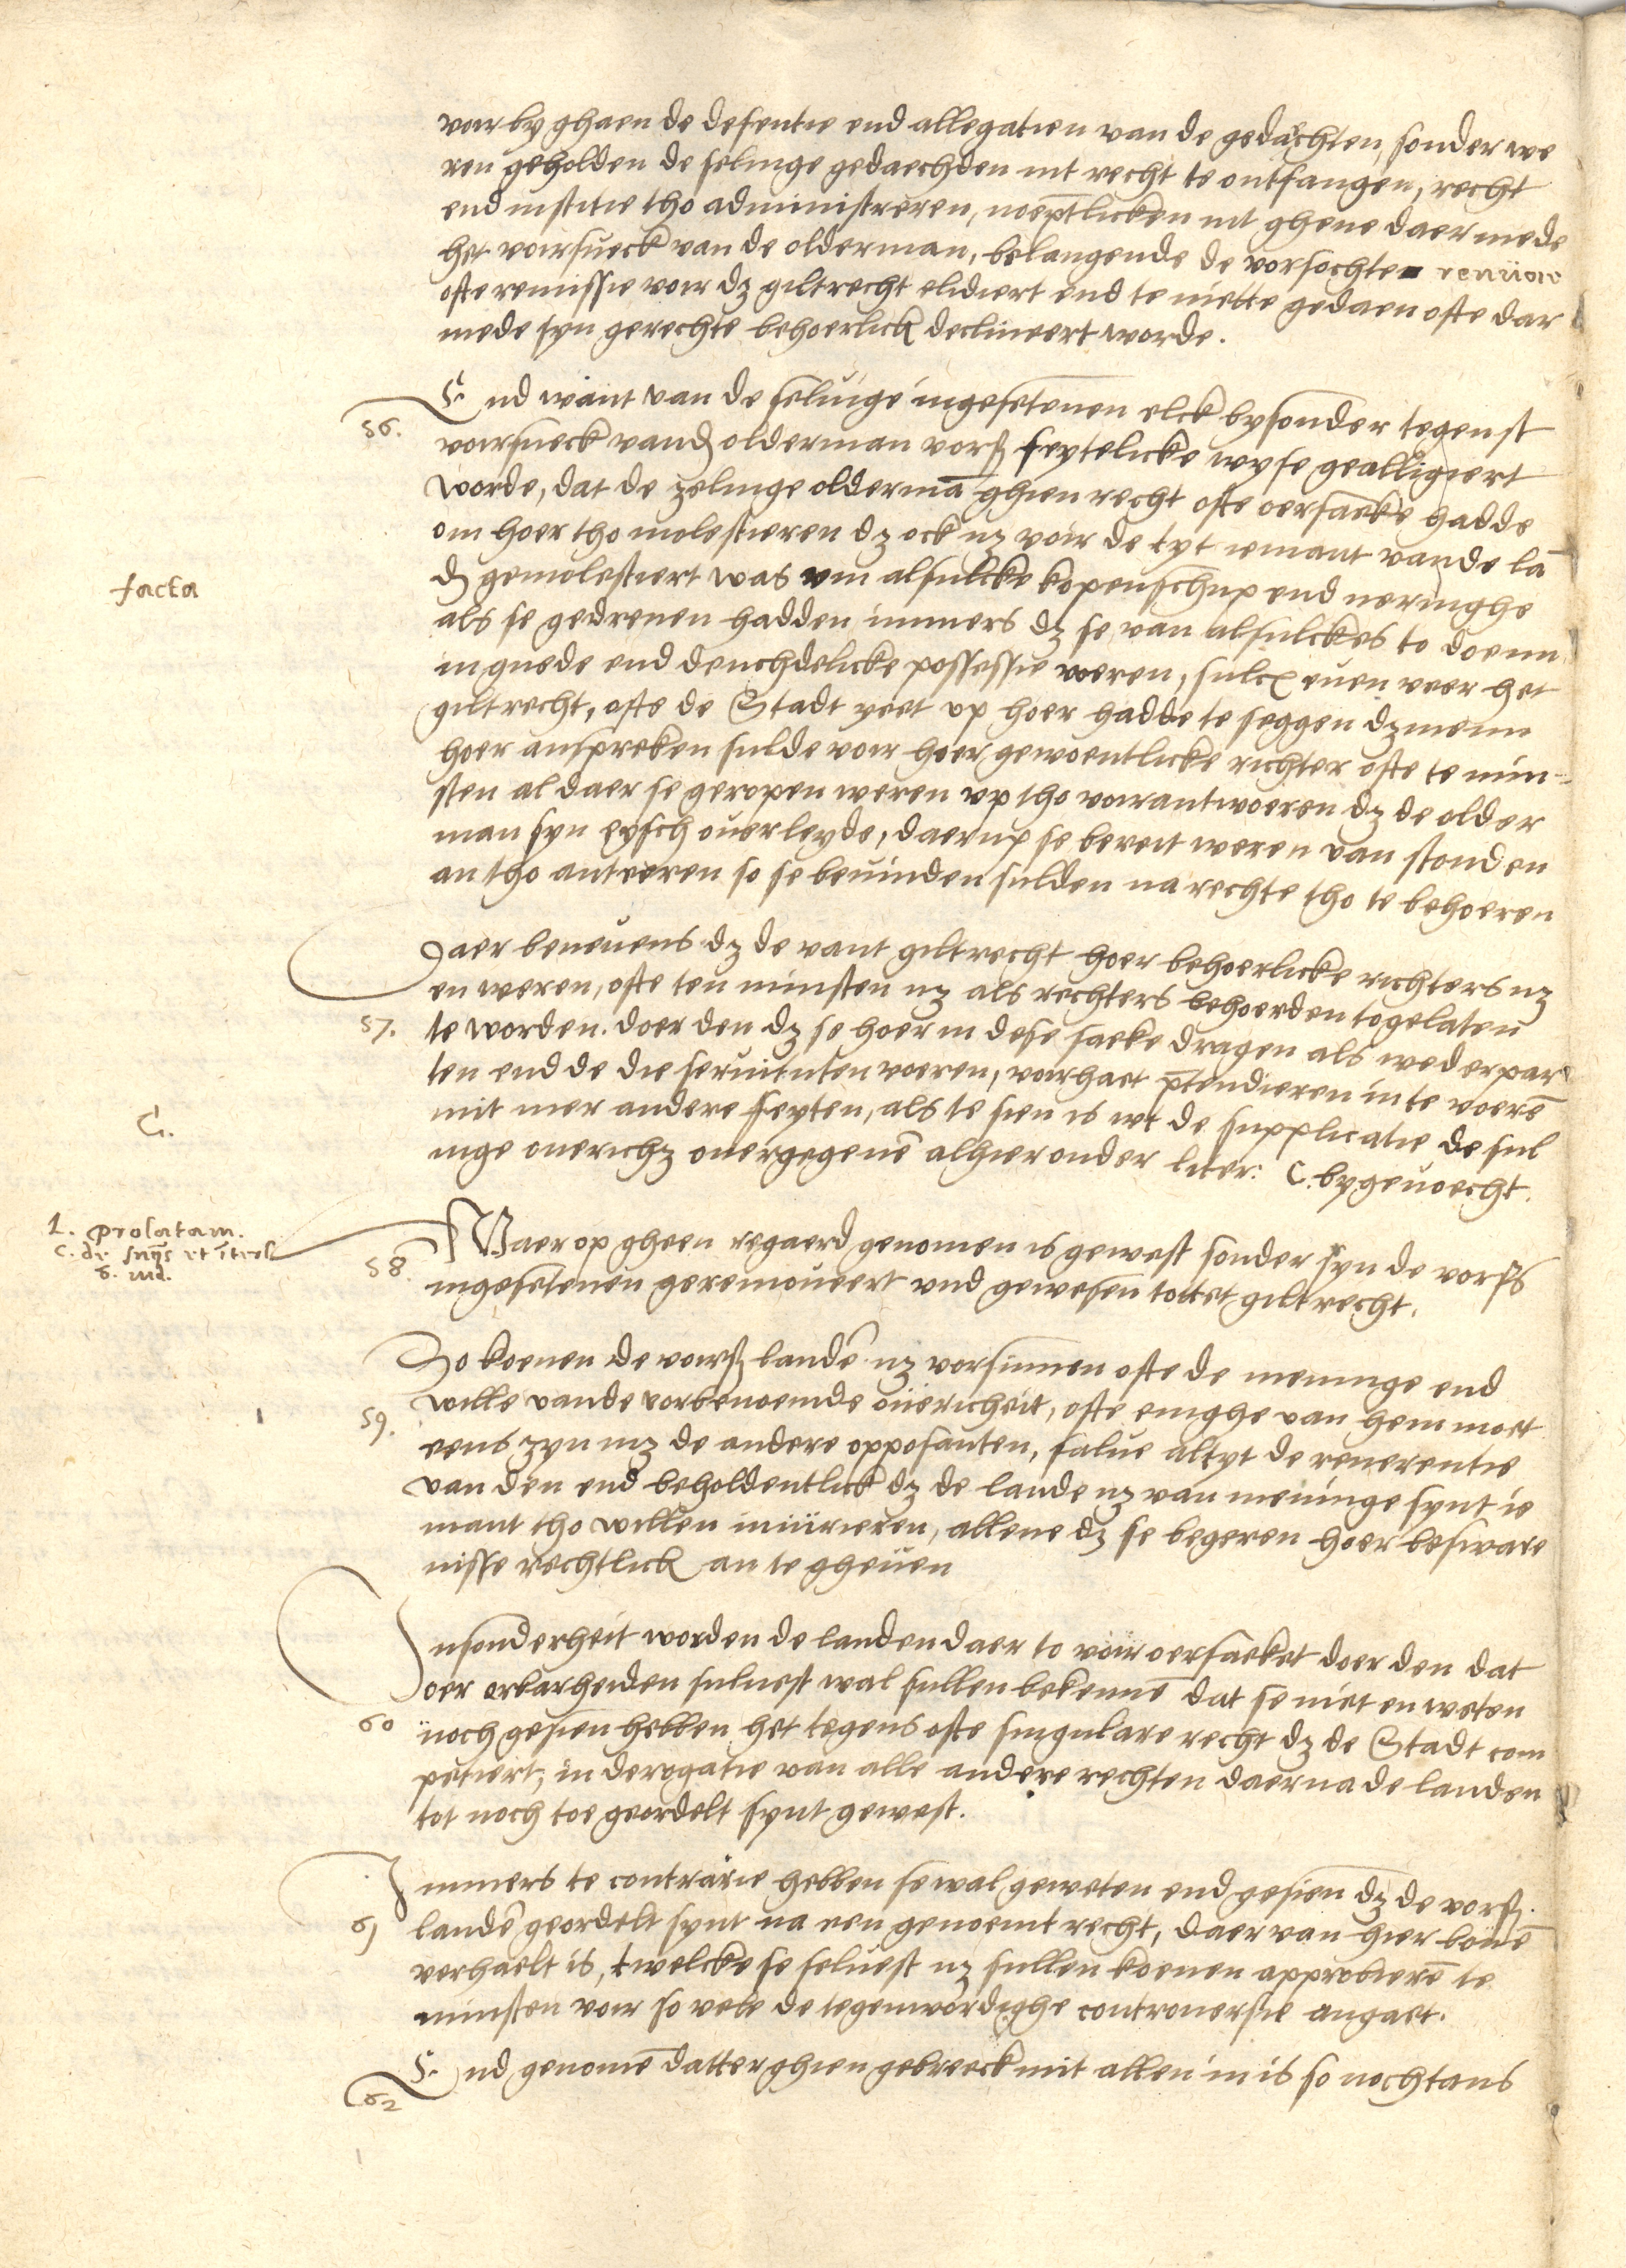 voir by ghaen de defentie end allegatien van de gedachten, sonder we
ren geholden de seluige gedaechden int recht te ontfangen, recht
end institie tho administreren, noeptlicken int ghene daer mede
het voirsueck van de olderman, belangende de vorsochte renuoie
ofte remissie voir dz giltrecht elidiert end te niette gedaen ofte dar
mede syn gerechte behoerlick declineert worde.
56. End want van de seluige ingesetenen elck bysonder tegenst
voirsueck vand olderman vorß feytelicke wyse gealligiert
worde, dat de zeluige oldermā ghien recht ofte oersaeke hadde
om hoer tho molestieren dz ock nz voir de tyt iemant vande lā
facta
d gemolestiert was vm alsulcke kopenschup end neringhe
als se gedreuen hadden immers dz se van alsulckes to doenn
in guede end deuchdelicke possessie weren, sulcx euen veer het
giltrecht, ofte de Stadt yeet vp hoer hadde te seggen dz menn
hoer anspreken sulde voir hoer gewoentlicke richter ofte te min-
sten al daer se geropen weren vp tho voirantwoeren dz de older
man syn eysch ouerleyde, daerup se bereit weren van stonden
an tho anteren so se beuinden sulden na rechte tho te behoeren
Daer beneuens dz de vant giltrecht hoer behoerlicke richters nz
en weren, ofte ten minsten nz als rechters behoerden togelaten
57. te worden. doer den dz se hoer in dese saeke dragen als wederpar
ten end de die seruituten voeren, voirhaet ptendieren in te voerē
C.
mit mer andere feyten, als te sien is wt de supplicatie de sul
uige ouerichz ouergegeuē alhier onder liter: C. bygeuoecht.
1. prolatam.
c. de snijs et īterl
o. iud.
58. Waer op gheen regaerd genomen is gewest sonder syn de vorß
ingesetenen geremoueert vnd gewesen tottet giltrecht.
So koenen de voirß landē nz vorsinnen ofte de meninge end
59. wille vande vorbenoemde oüericheit, ofte enighe van hem moet
eens zyn mz de andere opposanten, salue altyt de reuerentie
van den end beholdentlick dz de lande nz van meninge synt ie
mant tho willen iniürieren, allene dz se begeren hoer beswaere
nisse rechtlick an te gheuen
Insonderheit worden de landen daer to voir oersaeket doer den dat
oer erbarheiden suluest wal sullen bekennē dat se niet en weten
60 noch gesien hebben het tegens ofte singulare recht dz de Stadt com
petiert, in derogatie van alle andere rechten daerna de landen
tot noch toe geordelt synt gewest.
Immers te contrarie hebben se wal geweten end gesien dz de vorß.
61 landē geordelt synt na een genoemt recht, daer van hier bouē
verhaelt is, twelcke se seluest nz sullen koenen approbierē te
minsten voir so vele de tegenwordighe controuersie angaet.
62 End genomē datter ghien gebreeck mit allen in is so nochtans